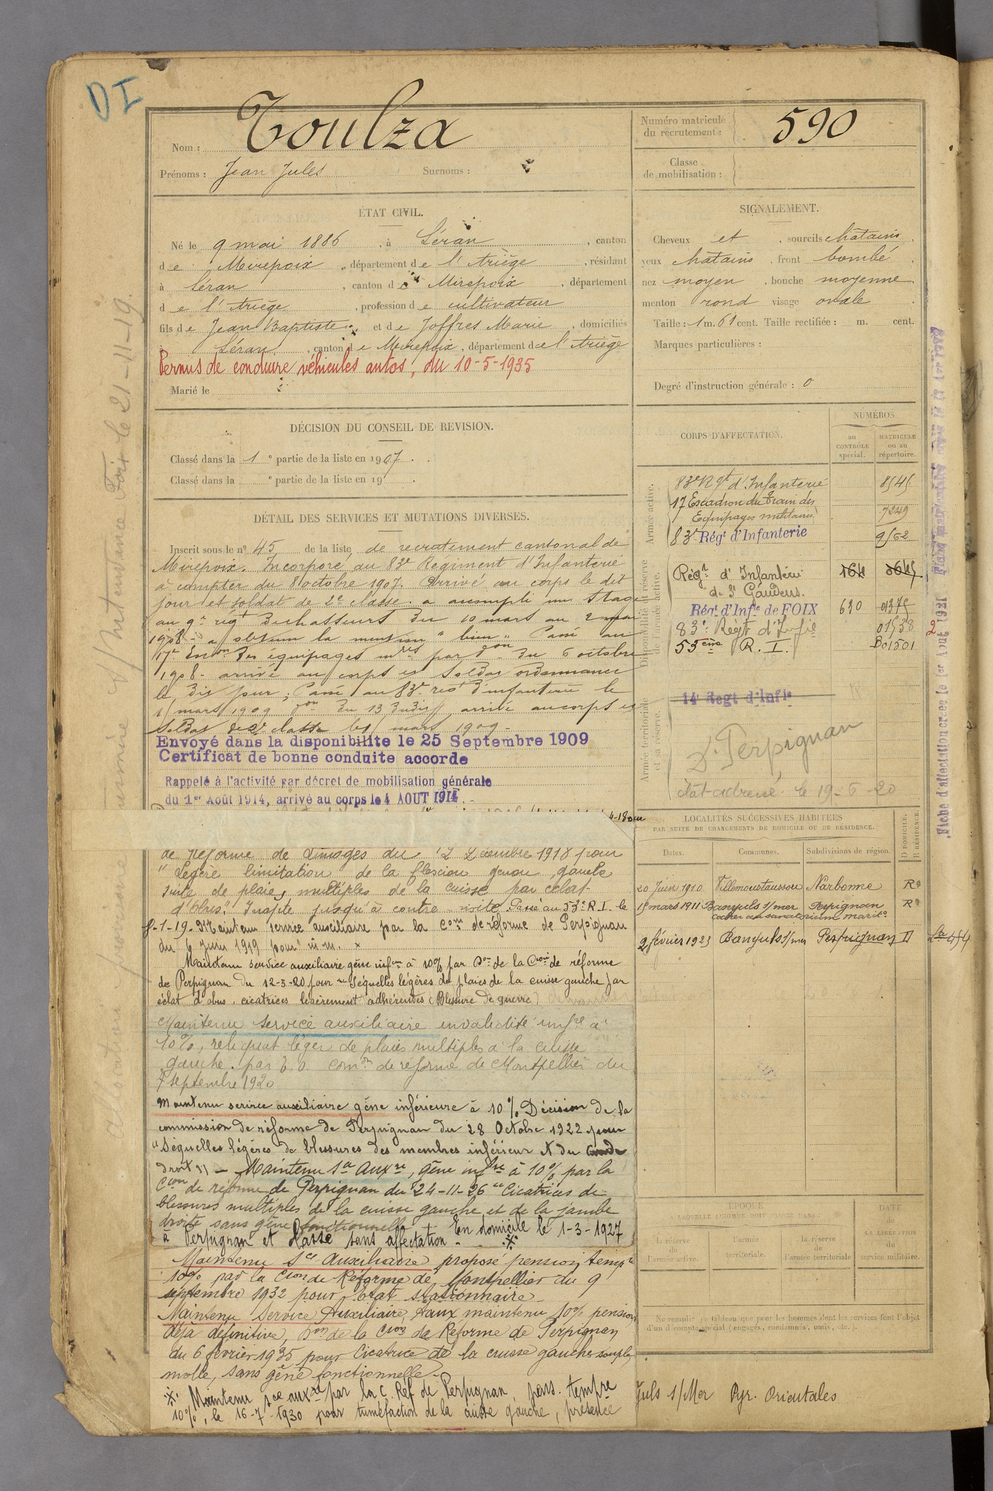 DI
Nom : Toulza
Prénoms : Jean Jules Surnoms :
Numéro matricule du recrutement : 590
Classe de mobilisation :
ÉTAT CIVIL.
Né le 9 mai 1886, à Léran, canton
de Mirepoix, département de l'Ariège, résidant
à Léran, canton de Mirepoix, département
de l'Ariège, profession de cultivateur
fils de Jean Baptiste et de Joffres Marie, domiciliés
à Léran, canton de Mirepoix, département de l'Ariège
Permis de conduire véhicules autos, du 10-5-1935
Marié le
SIGNALEMENT.
Cheveux et sourcils chatains
yeux chatains, front bombé
nez moyen, bouche moyenne
menton rond visage ovale
Taille : 1 m. 61 cent. Taille rectifiée : m. cent.
Marques particulières :
Degré d'instruction générale : 0
DÉCISION DU CONSEIL DE REVISION.
Classé dans la 1e partie de la liste en 1907.
Classé dans la e partie de la liste en 19 .
DÉTAIL DES SERVICES ET MUTATIONS DIVERSES.
Inscrit sous le no 45 de la liste de recrutement cantonal de
Mirepoix. Incorporé au 83e Régiment d'Infanterie
à compter du 8 octobre 1907. Arrivé au corps le dit
jour et soldat de 2e classe. a accompli un stage
au 9e régt de chasseurs du 10 mars au 2 mai
1908 a obtenu la mention "bien". Passé au
17e Eson des équipages mres par du 6 octobre
1908. arrivé au corps et soldat ordonnance
le dit jour ; Passé au 83e régt d'infanterie le
1 mars 1909 du 13 arrivé au corps et
soldat de 2e classe le 1 mars 1909
Envoyé dans la disponibilité le 25 Septembre 1909
Certificat de bonne conduite accordé
Rappelé à l'activité par décret de mobilisation générale
du 1er Août 1914, arrivé au corps le 4 AOUT 1914
de réforme de Limoges du 12 Décembre 1918 pour
"Légère limitation de la flexion genou gauche
suite de plaies multiples de la cuisse par éclat
d'obus." Inapte jusqu'à contre-visite. Passé au 53e R.I. le
8-1-19. Maintenu service auxiliaire par la Con de réforme de Perpignan
du 6 Juin 1919 pour m.m.
Maintenu service auxiliaire gêne infre à 10% par Don de la Con de réforme
de Perpignan du 12-3-20 pour "Séquelles légères de plaies de la cuisse gauche par
éclat d'obus, cicatrices légèrement adhérentes (Blessure de guerre)
Maintenu service auxiliaire invalidité infre à
10%, reliquat léger de plaies multiples à la cuisse
gauche. par la com. de réforme de Montpellier du
7 septembre 1920
Maintenu service auxiliaire gêne inférieure à 10% Décision de la
commission de réforme de Perpignan du 28 Octobre 1922 pour
"Séquelles légères de blessures des membres inférieur
droit") — Maintenu Sce Auxre, gêne infre à 10% par la
Con de réforme de Perpignan du 24-11-26 "Cicatrices de
blessures multiples de la cuisse gauche et de la jambe
droite sans gêne fonctionnelle
à Perpignan et classé sans affectation. En domicile le 1-3-1927
Maintenu Sce Auxiliaire, proposé pension tempre
10% par la Con de Réforme de Montpellier du 9
septembre 1932 pour état stationnaire
Maintenu Service Auxiliaire, taux maintenu 10% pension
déjà définitive, Don de la Con de Réforme de Perpignan
du 6 février 1935 pour Cicatrice de la cuisse gauche souple
molle, sans gêne fonctionnelle.
Maintenu Sce auxre par la C. Réf. de Perpignan, pens. tempre
10%, le 16-7-1930 pour tuméfaction de la cuisse gauche, présence
CORPS D'AFFECTATION.
NUMÉROS
au CONTRÔLE spécial.
MATRICULE ou au répertoire.
Armée active.
83e Rgt d'Infanterie 8545
17 Escadron du Train des
Equipages militaires 7249
83e Régt d'Infanterie 9562
Régt d'Infanterie
de St Gaudens.
Régt d'Infie de FOIX 630
83e Régt d'Infie
53ème R.I. B01501
14e Regt d'Infie
Dt Perpignan
état adressé le 19-6-20
LOCALITÉS SUCCESSIVES HABITÉES
PAR SUITE DE CHANGEMENTS DE DOMICILE OU DE RÉSIDENCE.
Dates. Communes. Subdivisions de région.
20 Juin 1910 Villemoustaussou Narbonne R
15 mars 1911 Banyuls s/mer Perpignan R
cocher au sanatorium marite
9 février 1923 Banyuls s/mer Perpignan D
ÉPOQUE
la réserve de l'armée active.
l'armée territoriale.
la réserve de l'armée territoriale
DATE de LA LIBÉRATION du service militaire.
yuls s/Mer Pyr. Orientales